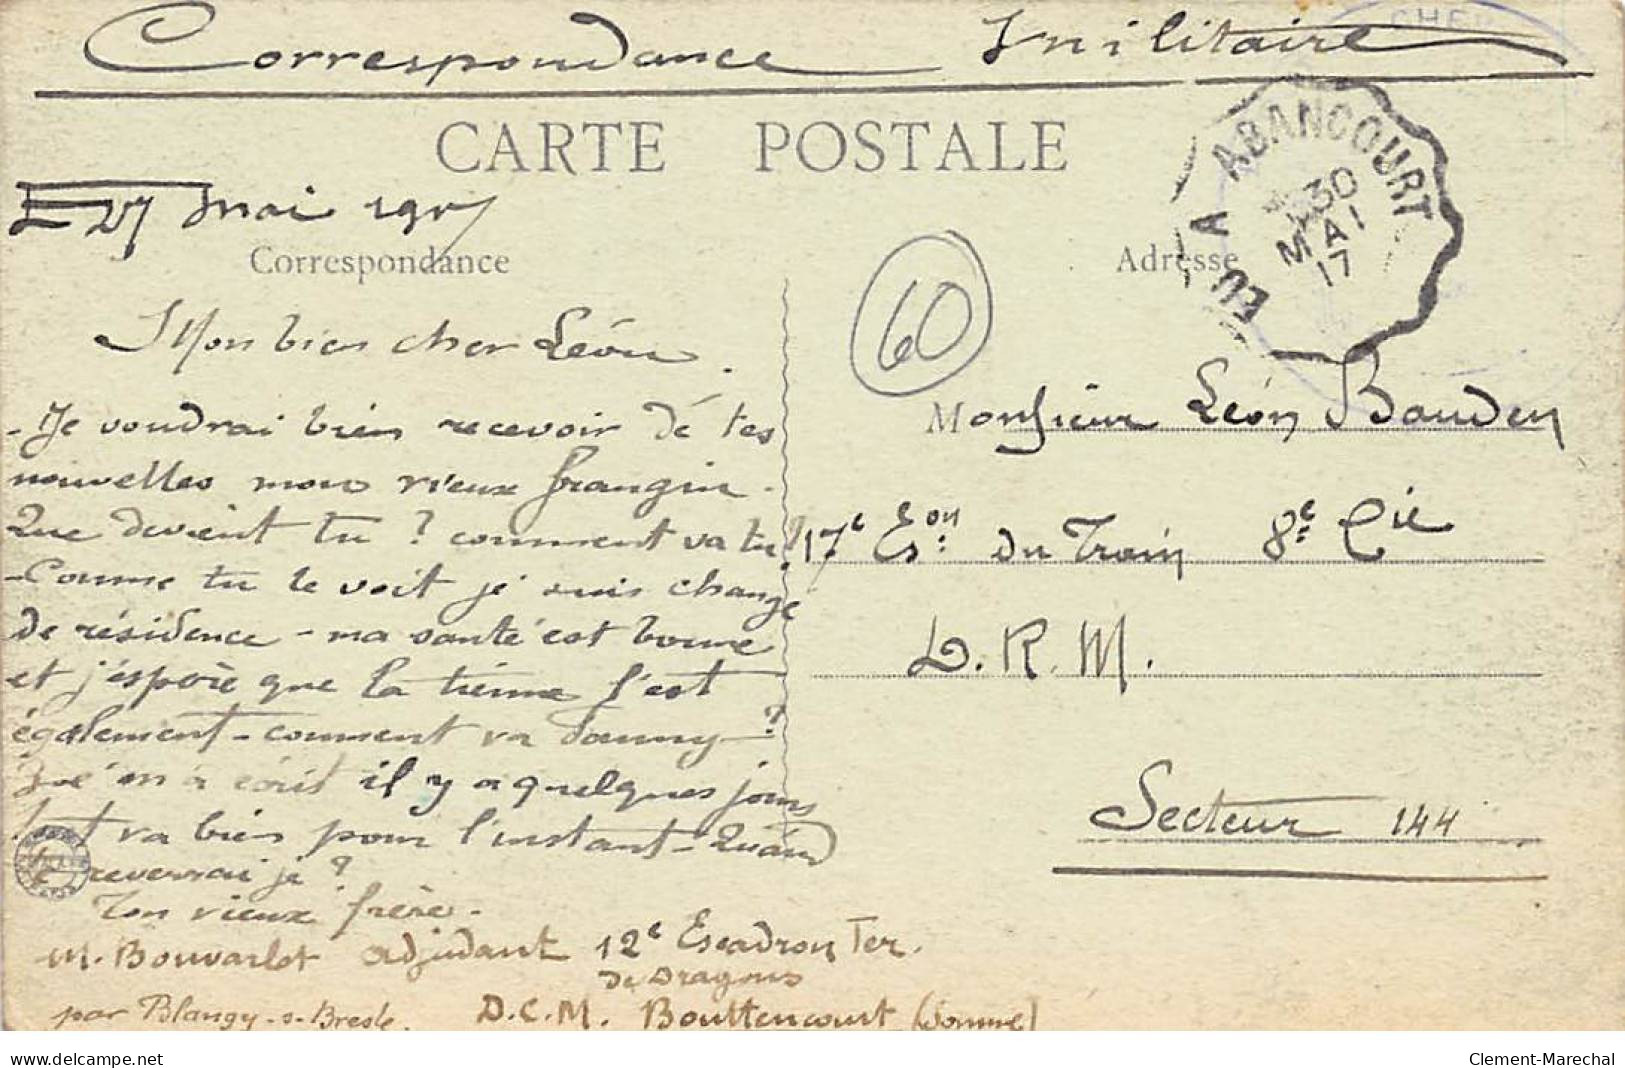 Correspondance Militaire
CARTE POSTALE
Le 27 mai 1917
Correspondance
Adresse
EU A ABANCOURT
30
MAI
17
60
Mon bien cher Léon.
Je voudrai bien recevoir de tes
nouvelles mon vieux frangin.
Que devient tu ? comment va tu ?
Comme tu le voit je suis changé
de résidence - ma santé est bonne
et j'espère que la tienne l'est
également - comment va Fanny ?
m'a écrit il y a quelques jours
tout va bien pour l'instant - Quand
te reverrai je ?
Ton vieux frère.
M. Bouvarlet adjudant 12e Escadron Ter.
de Dragons
par Blangy-s-Bresle. D.C.M. Bouttencourt (Somme)
Monsieur Léon Bauden
17e Eson du Train 8e Cie
D.R.M.
Secteur 144
delcampe.net
Clement-Marechal